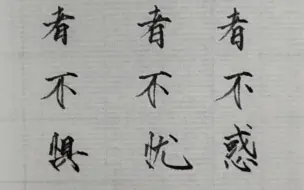 者不惑
者不忧
者不惧